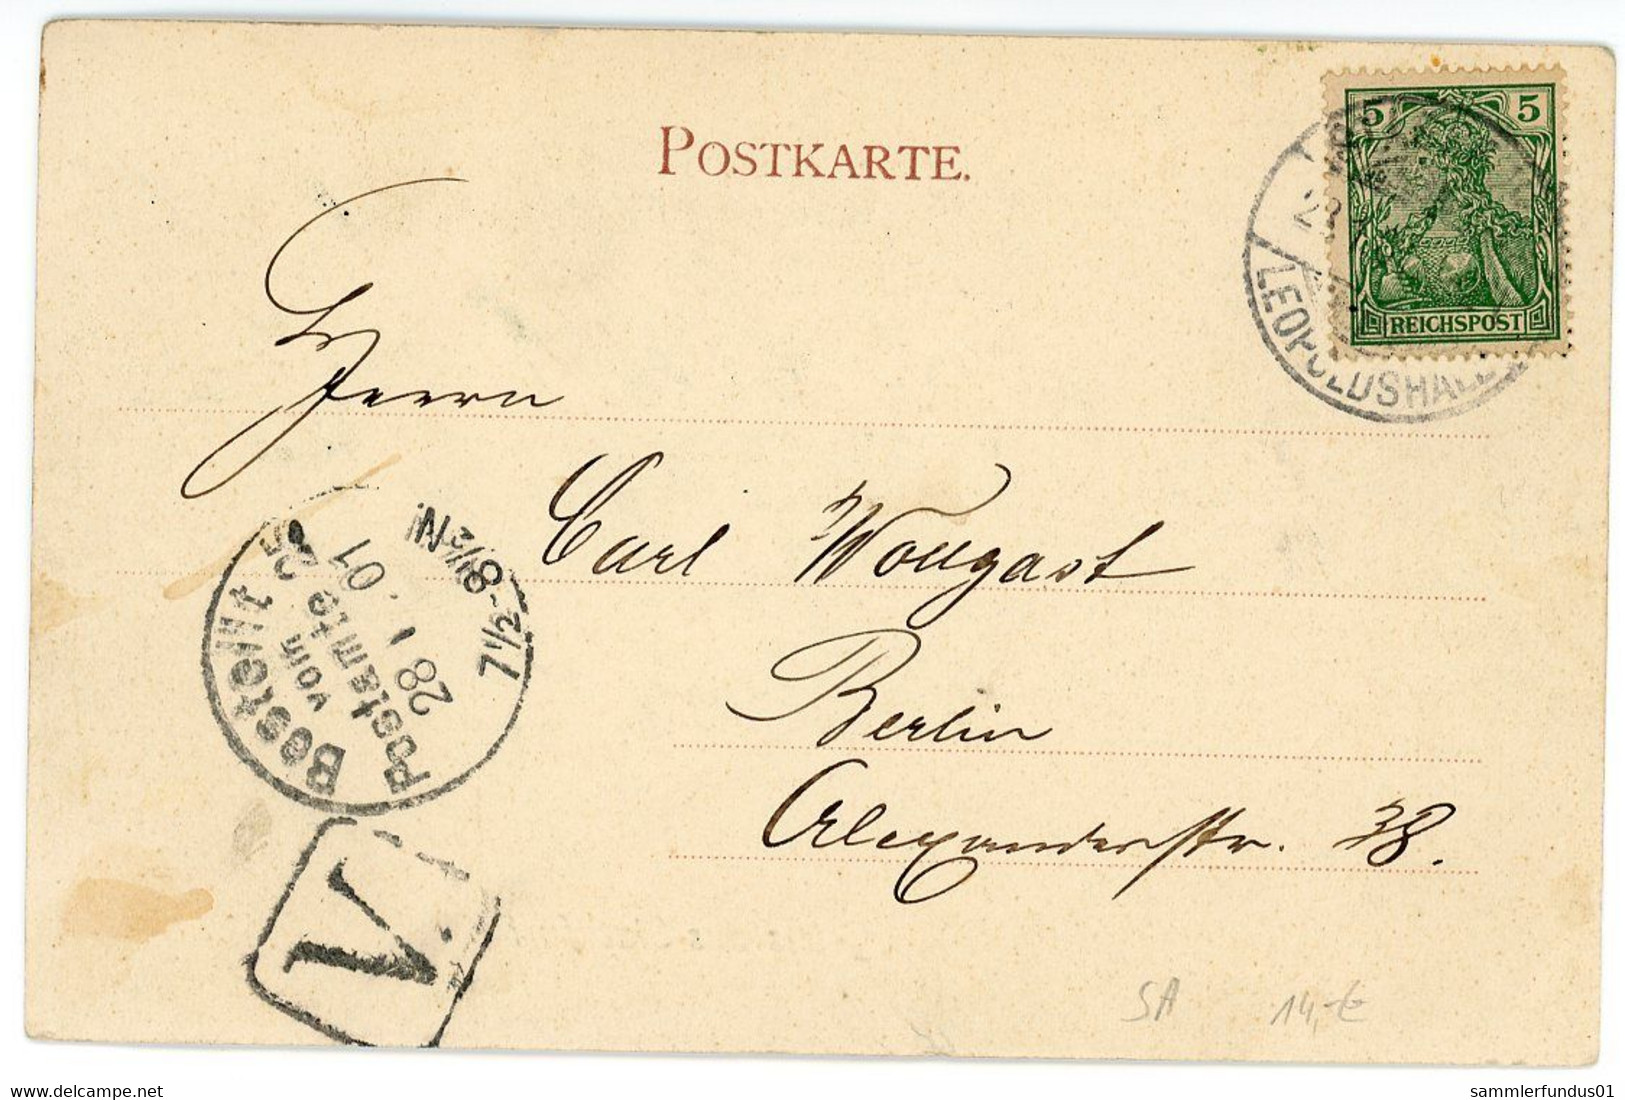 POSTKARTE.
5 5
REICHSPOST
LEOPOLDSHALL
Herrn
Carl Wongast
Berlin
Alexanderstr. 38.
Bestellt
vom
Postamte 25
28 1. 01
7½-8½N
V.
SA 14,-€
delcampe.net
sammlerfundus01